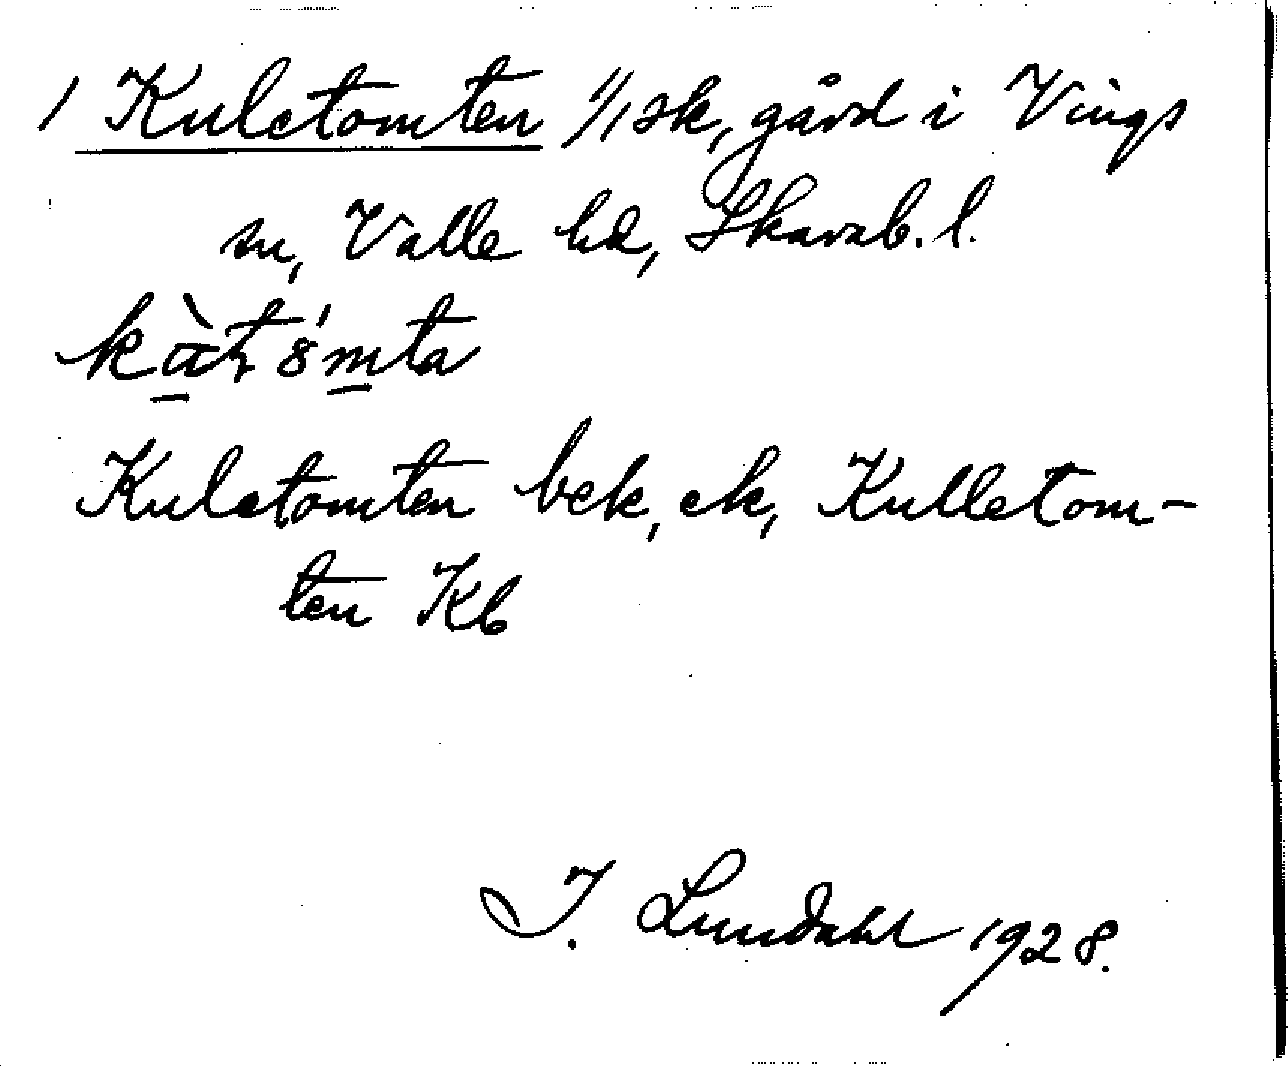 1 Kuletomten 1/1 sk, gård i Vings
sn, Valle hd, Skarab. l.
Kuletomten bek, ek, Kulletom-
ten Kb
I. Lundahl 1928.